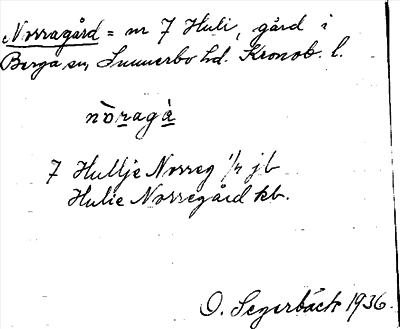 Norragård = nr 7 Huli, gård i
Berga sn, Sunnerbo hd. Kronob. l.
nòragà
7 Hullje Norreg 1/4 jb
Hulie Norregård kb.
O. Segerbäck 1936.